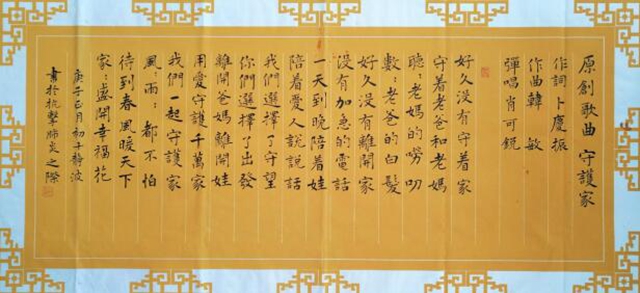 原創歌曲 守護家
作詞 卜慶振
作曲 韓 敏
彈唱 肖可銳
好久沒有守着家
守着老爸和老媽
聽：老媽的嘮叨
數：老爸的白髮
好久沒有離開家
沒有加急的電話
一天到晚陪着娃
陪着愛人說說話
我們選擇了守望
你們選擇了出發
離開爸媽離開娃
用愛守護千萬家
我們一起守護家
風：雨：都不怕
待到春風暖天下
家：盛開幸福花
庚子正月初十静波
書於抗擊肺炎之際